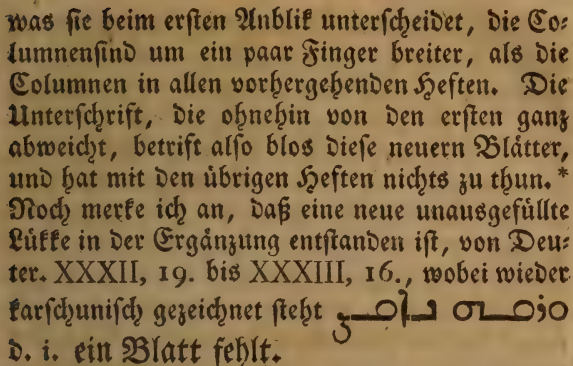 was ſie beim erſten Anblik unterſcheidet, die Co⸗
lumnenſind um ein paar Finger breiter, als die
Columnen in allen vorhergehenden Heften. Die
Unterſchrift, die ohnehin von den erſten ganz
abweicht, betrift alſo blos dieſe neuern Blätter,
und hat mit den übrigen Heften nichts zu thun.*
Noch merke ich an, daß eine neue unausgefüllte
Lükke in der Ergänzung entſtanden iſt, von Deu⸗
ter. XXXII, 19. bis XXXIII, 16., wobei wieder
karſchuniſch gezeichnet ſteht ܘܪܩܗ ܢܐܩܨ
d. i. ein Blatt fehlt.